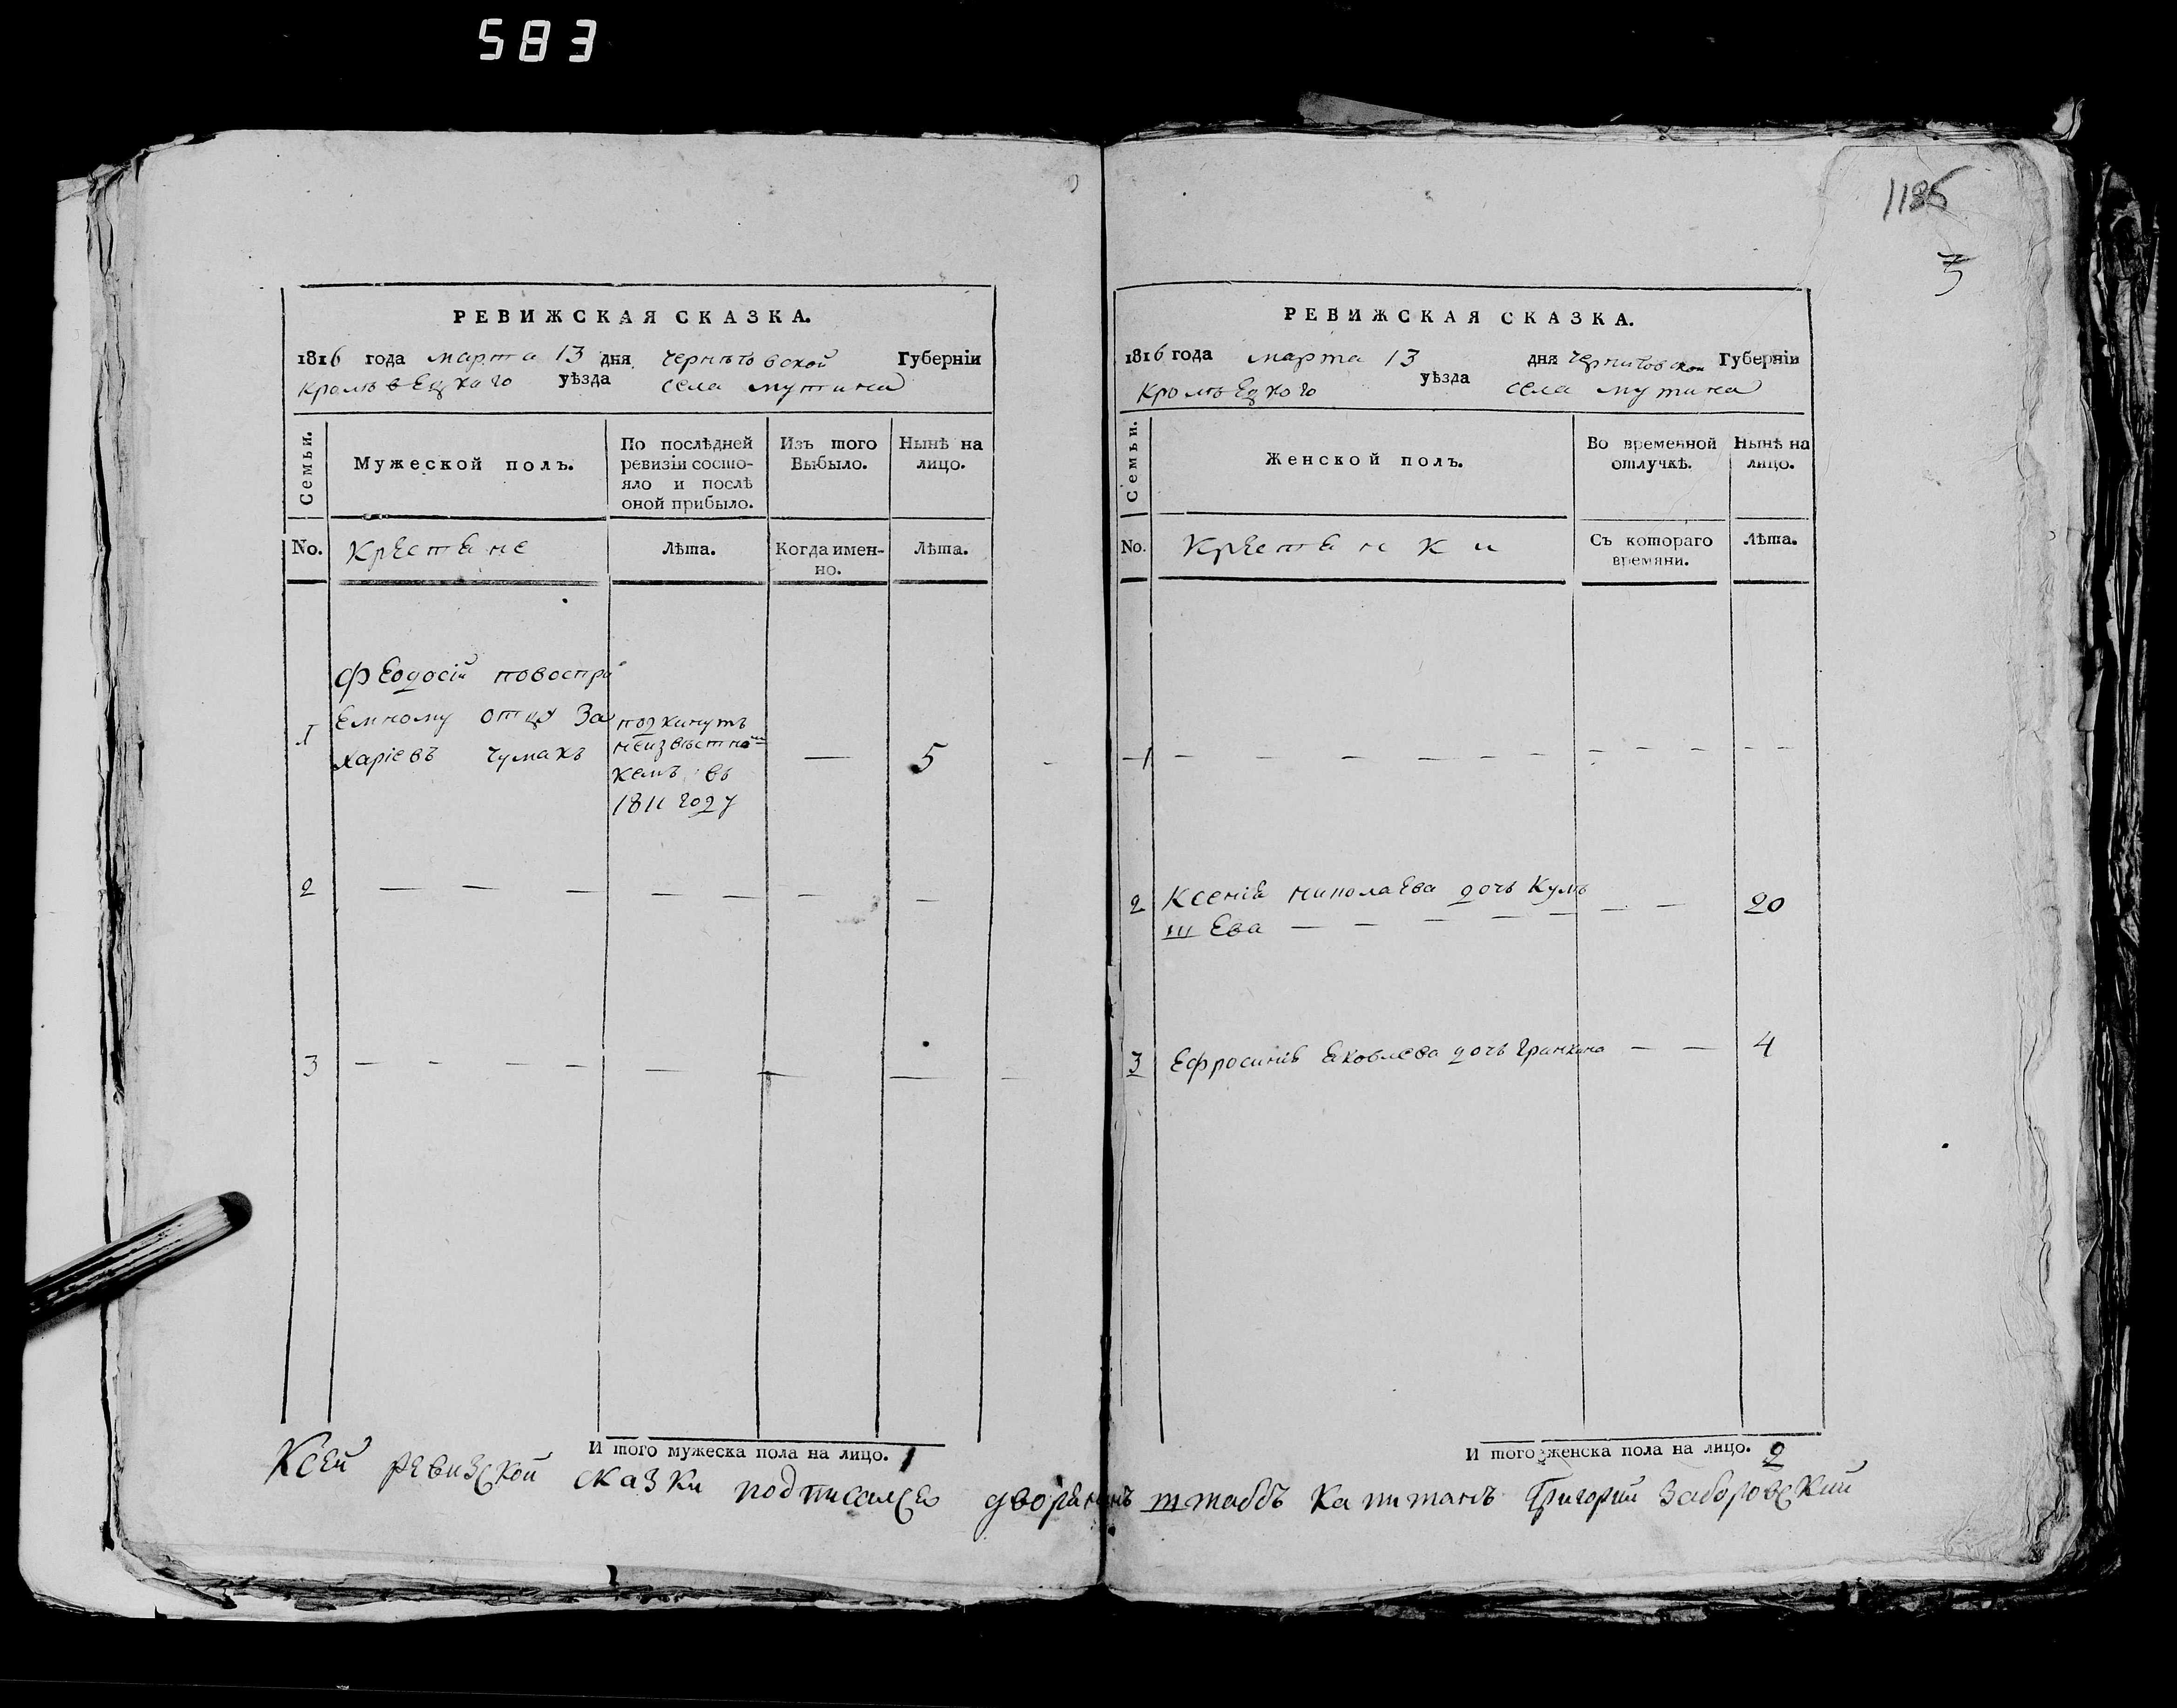 583
1185
3
РЕВИЖСКАЯ СКАЗКА.
1816 года марта 13 дня Чернѣговской Губерніи
Кролѣвецкаго уѣзда села мутина
Семьи.
Мужеской полъ.
По послѣдней ревизіи состо-
яло и послѣ оной прибыло.
Изъ того Выбыло.
Нынѣ на лицо.
No.
Крестяне
Лѣта.
Когда имен-
но.
Лѣта.
1
Феодосій повоспри
емному отцу За
харіевъ Чумакъ
подкинутъ
неизвѣстно
кемъ въ
1811 году
—
5
2 — — — — — — —
3 — — — — — — —
И того мужеска пола на лицо. 1
РЕВИЖСКАЯ СКАЗКА.
1816 года марта 13 дня Чернѣговской Губерніи
Кролѣвецкого уѣзда села мутина
Семьи.
Женской полъ.
Во временной отлучкѣ.
Нынѣ на лицо.
No.
Крестянки
Съ котораго времяни.
Лѣта.
1 — — — — — — — — —
2 Ксенія николаева дочь Кулѣ
шева — — — — — — — 20
3 Ефросинія Яковлева дочь — — 4
И того женска пола на лицо. 2
Ксей ревизской сказки подписался дворянинъ штабсъ Капитанъ Григорий Заборовский